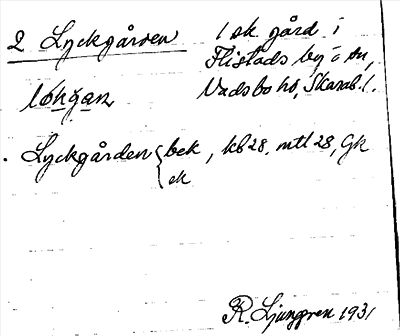 2 Lyckgården
1 sk gård i
Flistads by o sn,
Vadsbo hd, Skarab. l.
lökgan
Lyckgården { bek, kb 28, mtl 28, Gk
ek
R. Ljunggren 1931